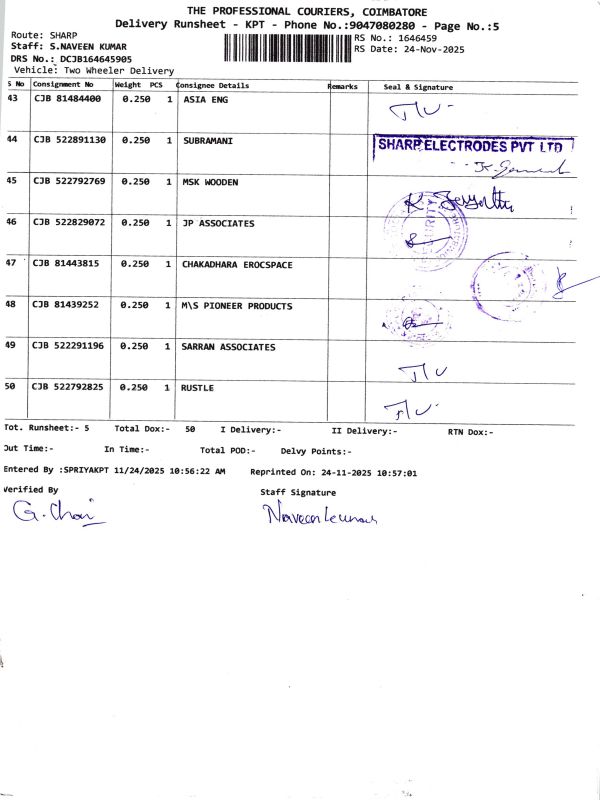 THE PROFESSIONAL COURIERS, COIMBATORE
Delivery Runsheet - KPT - Phone No.:9047080280 - Page No.:5
Route: SHARP
RS No.: 1646459
Staff: S.NAVEEN KUMAR
RS Date: 24-Nov-2025
DRS No.: DCJB164645905
Vehicle: Two Wheeler Delivery
S No Consignment No Weight PCS Consignee Details Remarks Seal & Signature
43 CJB 81484400 0.250 1 ASIA ENG
44 CJB 522891130 0.250 1 SUBRAMANI SHARP ELECTRODES PVT LTD
45 CJB 522792769 0.250 1 MSK WOODEN
46 CJB 522829072 0.250 1 JP ASSOCIATES
47 CJB 81443815 0.250 1 CHAKADHARA EROCSPACE
48 CJB 81439252 0.250 1 M\S PIONEER PRODUCTS
49 CJB 522291196 0.250 1 SARRAN ASSOCIATES
50 CJB 522792825 0.250 1 RUSTLE
Tot. Runsheet:- 5 Total Dox:- 50 I Delivery:- II Delivery:- RTN Dox:-
Out Time:- In Time:- Total POD:- Delvy Points:-
Entered By :SPRIYAKPT 11/24/2025 10:56:22 AM Reprinted On: 24-11-2025 10:57:01
Verified By Staff Signature